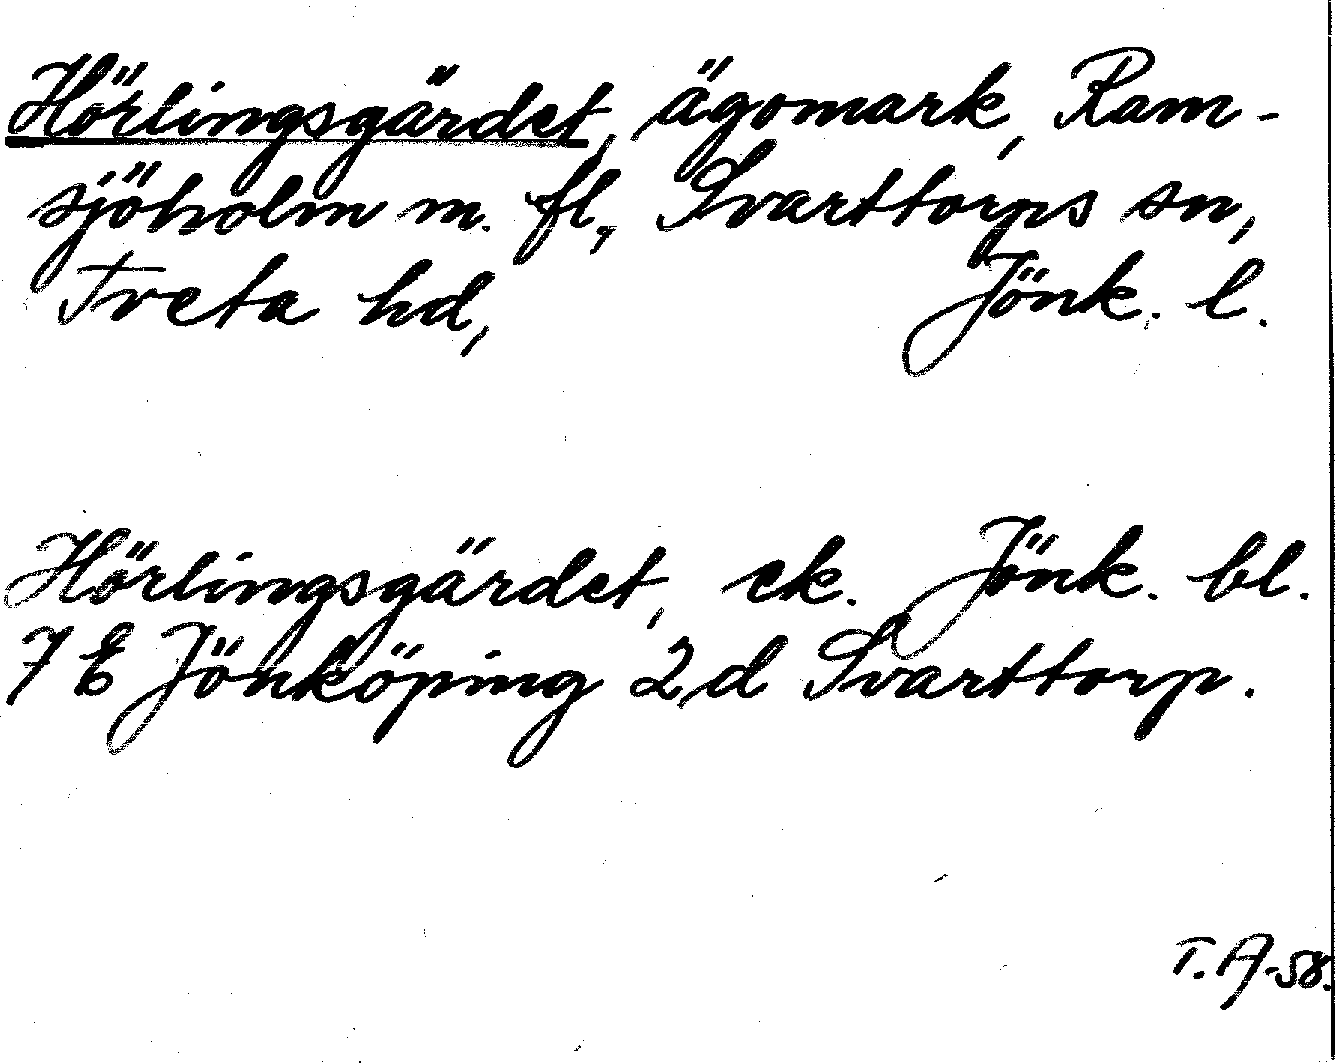 Hörlingsgärdet, ägomark, Ram-
sjöholm m. fl., Svarttorps sn,
Tveta hd, Jönk. l.
Hörlingsgärdet, ek. Jönk. bl.
7 E Jönköping 2 d Svarttorp.
T. A-58.